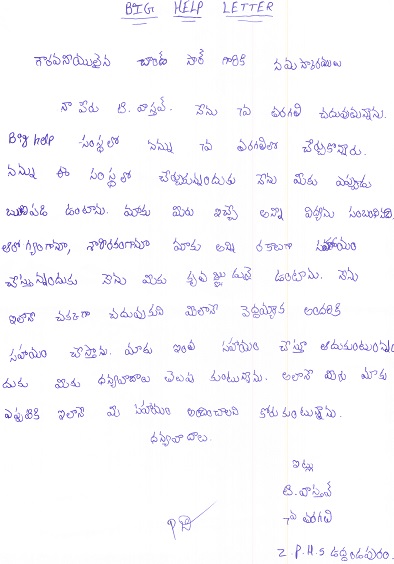 BIG HELP LETTER
గౌరవనీయులైన చాంద్ సార్ గారికి నమస్కారములు
నా పేరు టి. వాస్తవ్. నేను 7వ తరగతి చదువుతున్నాను.
Big help సంస్థలో నన్ను 7వ తరగతిలో చేర్చుకొన్నారు.
నన్ను ఈ సంస్థలో చేర్చుకున్నందుకు నేను మీకు ఎప్పుడు
బుణపడి ఉంటాను. మాకు మీరు ఇచ్చే అన్ని విద్యను సంబంధించి
ఆరోగ్యంగాను, శారీరకంగాను మాకు అన్ని రకాలుగా సహాయం
చేస్తున్నందుకు నేను మీకు కృతజ్ఞుడునై ఉంటాను. నేను
ఇలానే చక్కగా చదువుకుని మీలానే పెద్దయ్యాక అందరికి
సహాయం చేస్తాను. మాకు ఇంత సహాయం చేస్తూ ఆదుకుంటున్నం
దుకు మీకు ధన్యవాదాలు తెలుపు కుంటున్నాను. అలానే మీరు మాకు
ఎప్పటికి ఇలానే మీ సహాయం అందించాలని కోరుకుంటున్నాను.
ధన్యవాదాలు.
ఇట్లు
టి. వాస్తవ్
7వ తరగతి
Z.P.H.S ఉద్దండపురం.